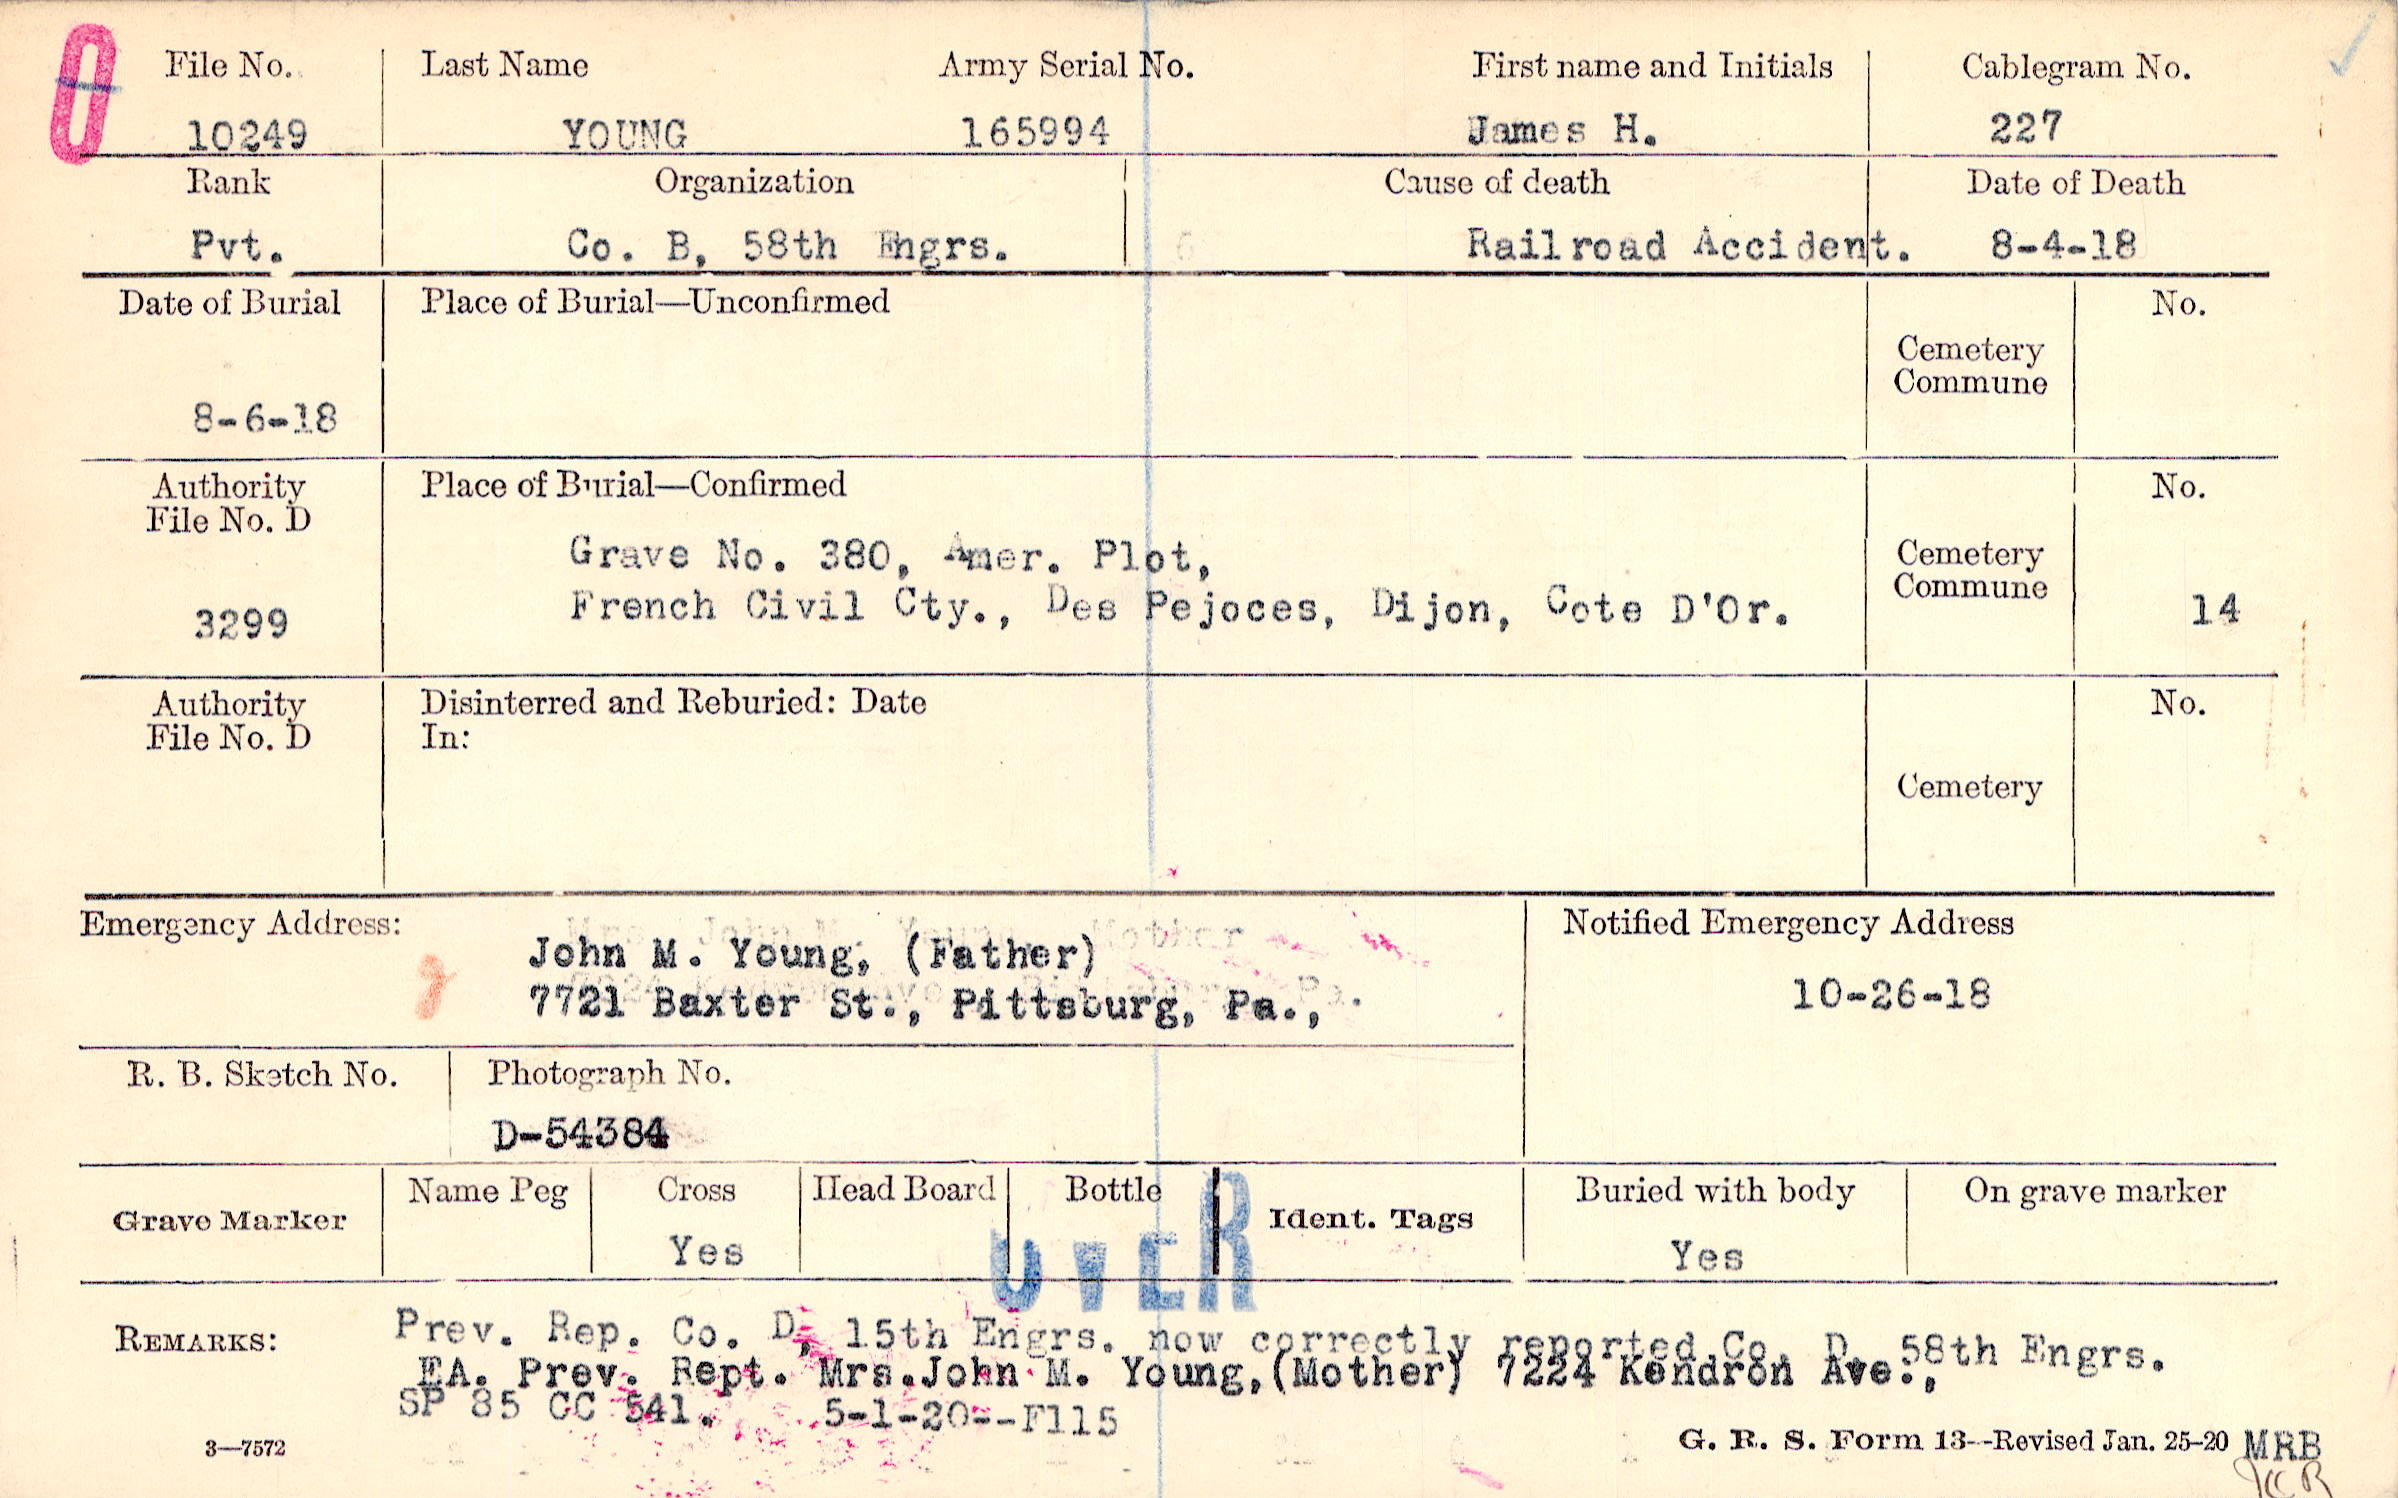 File No. Last Name Army Serial No. First name and Initials Cablegram No.
10249 YOUNG 165994 James H. 227
Rank Organization Cause of death Date of Death
Pvt. Co. B, 58th Engrs. Railroad Accident. 8-4-18
Date of Burial Place of Burial—Unconfirmed No.
Cemetery
Commune
8-6-18
Authority Place of Burial—Confirmed No.
File No. D
Grave No. 380, Amer. Plot, Cemetery
Commune
3299 French Civil Cty., Des Pejoces, Dijon, Cote D'Or. 14
Authority Disinterred and Reburied: Date No.
File No. D In:
Cemetery
Emergency Address: Notified Emergency Address
John M. Young, (Father)
7721 Baxter St., Pittsburg, Pa., 10-26-18
R. B. Sketch No. Photograph No.
D-54384
Grave Marker Name Peg Cross Head Board Bottle Ident. Tags Buried with body On grave marker
Yes Yes
OVER
REMARKS: Prev. Rep. Co. D, 15th Engrs. now correctly reported Co. D, 58th Engrs.
EA. Prev. Rept. Mrs.John M. Young,(Mother) 7224 Kendron Ave.,
SP 85 CC 541. 5-1-20--F115
3—7572 G. R. S. Form 13--Revised Jan. 25-20 MRB